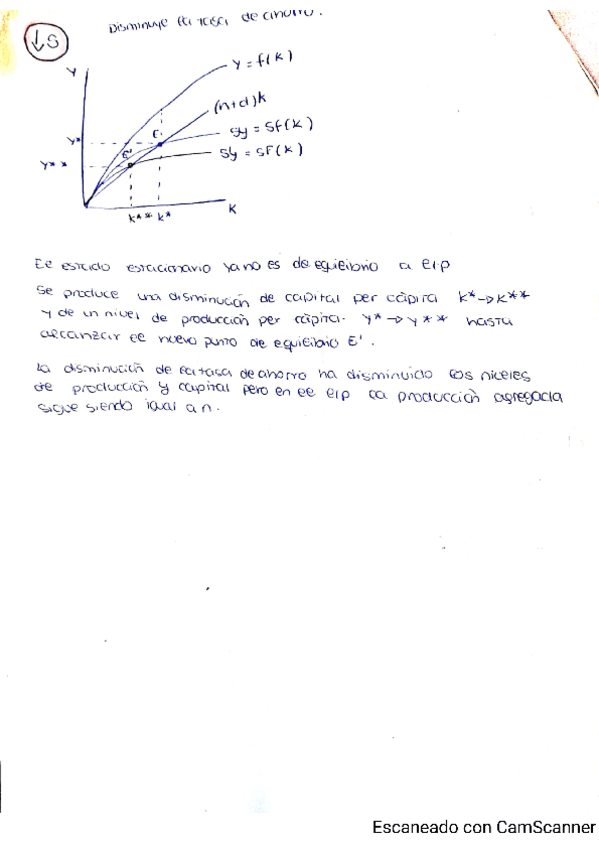 Disminuye la tasa de ahorro.
↓S
Y
y = f(k)
(n+d)k
sy = sf(k)
sy = sf(k)
y*
y**
E
E'
k** k*
K
El estado estacionario ya no es de equilibrio a e l p
Se produce una disminución de capital per cápita k* → k**
y de un nivel de producción per cápita. y* → y** hasta
alcanzar el nuevo punto de equilibrio E'.
La disminución de la tasa de ahorro ha disminuido los niveles
de producción y capital pero en el e l p la producción agregada
sigue siendo igual a n.
Escaneado con CamScanner